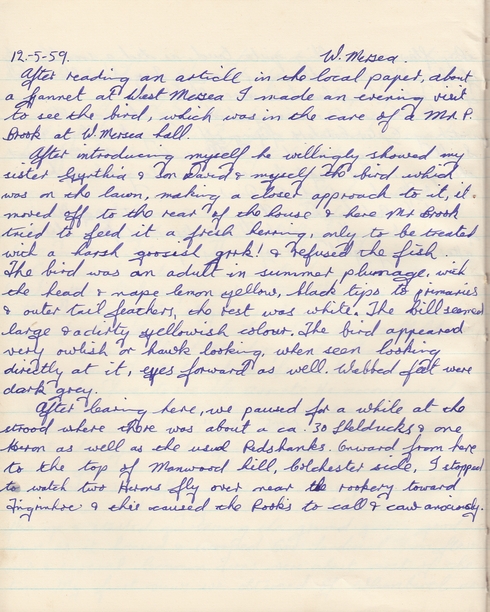 12-5-59. W. Mersea.
After reading an article in the local paper, about
a Gannet at West Mersea I made an evening visit
to see the bird, which was in the care of a Mr. P.
Brook at W. Mersea hall.
After introducing myself he willingly showed my
sister Cynthia & son David & myself the bird which
was on the lawn, making a closer approach to it, it
moved off to the rear of the house & here Mr Brook
tried to feed it a fresh herring, only to be treated
with a harsh grrk! & refused the fish.
The bird was an adult in summer plumage, with
the head & nape lemon yellow, black tips to primaries
& outer tail feathers, the rest was white. The bill seemed
large & a dirty yellowish colour. The bird appeared
very owlish or hawk looking, when seen looking
directly at it, eyes forward as well. Webbed feet were
dark grey.
After leaving here, we paused for a while at the
strood where there was about a ca. 30 Shelducks & one
Heron as well as the usual Redshanks. Onward from here
to the top of Manwood hill, Colchester side, I stopped
to watch two Herons fly over near the rookery toward
& this caused the Rooks to call & caw anxiously.